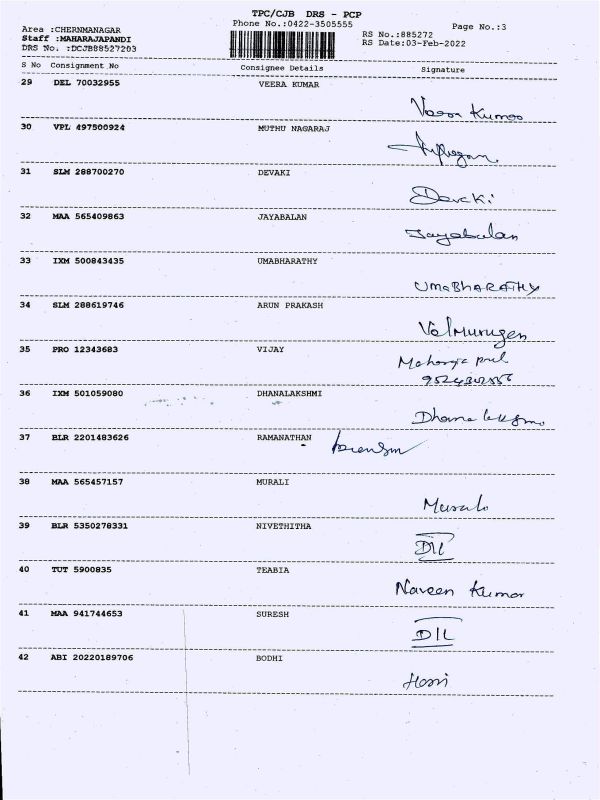 TPC/CJB DRS - PCP
Phone No.:0422-3505555
Page No.:3
Area :CHERNMANAGAR
Staff :MAHARAJAPANDI
DRS No. :DCJB88527203
RS No.:885272
RS Date:03-Feb-2022
S No Consignment No Consignee Details Signature
29 DEL 70032955 VEERA KUMAR
Veera Kumar
30 VPL 497500924 MUTHU NAGARAJ
31 SLM 288700270 DEVAKI
Devaki
32 MAA 565409863 JAYABALAN
Jayabalan
33 IXM 500843435 UMABHARATHY
UMABHARATHY
34 SLM 288619746 ARUN PRAKASH
Valmurugan
35 PRO 12343683 VIJAY
36 IXM 501059080 DHANALAKSHMI
37 BLR 2201483626 RAMANATHAN
38 MAA 565457157 MURALI
Murali
39 BLR 5350278331 NIVETHITHA
DIL
40 TUT 5900835 TEABIA
Naveen Kumar
41 MAA 941744653 SURESH
DIL
42 ABI 20220189706 BODHI
Hari